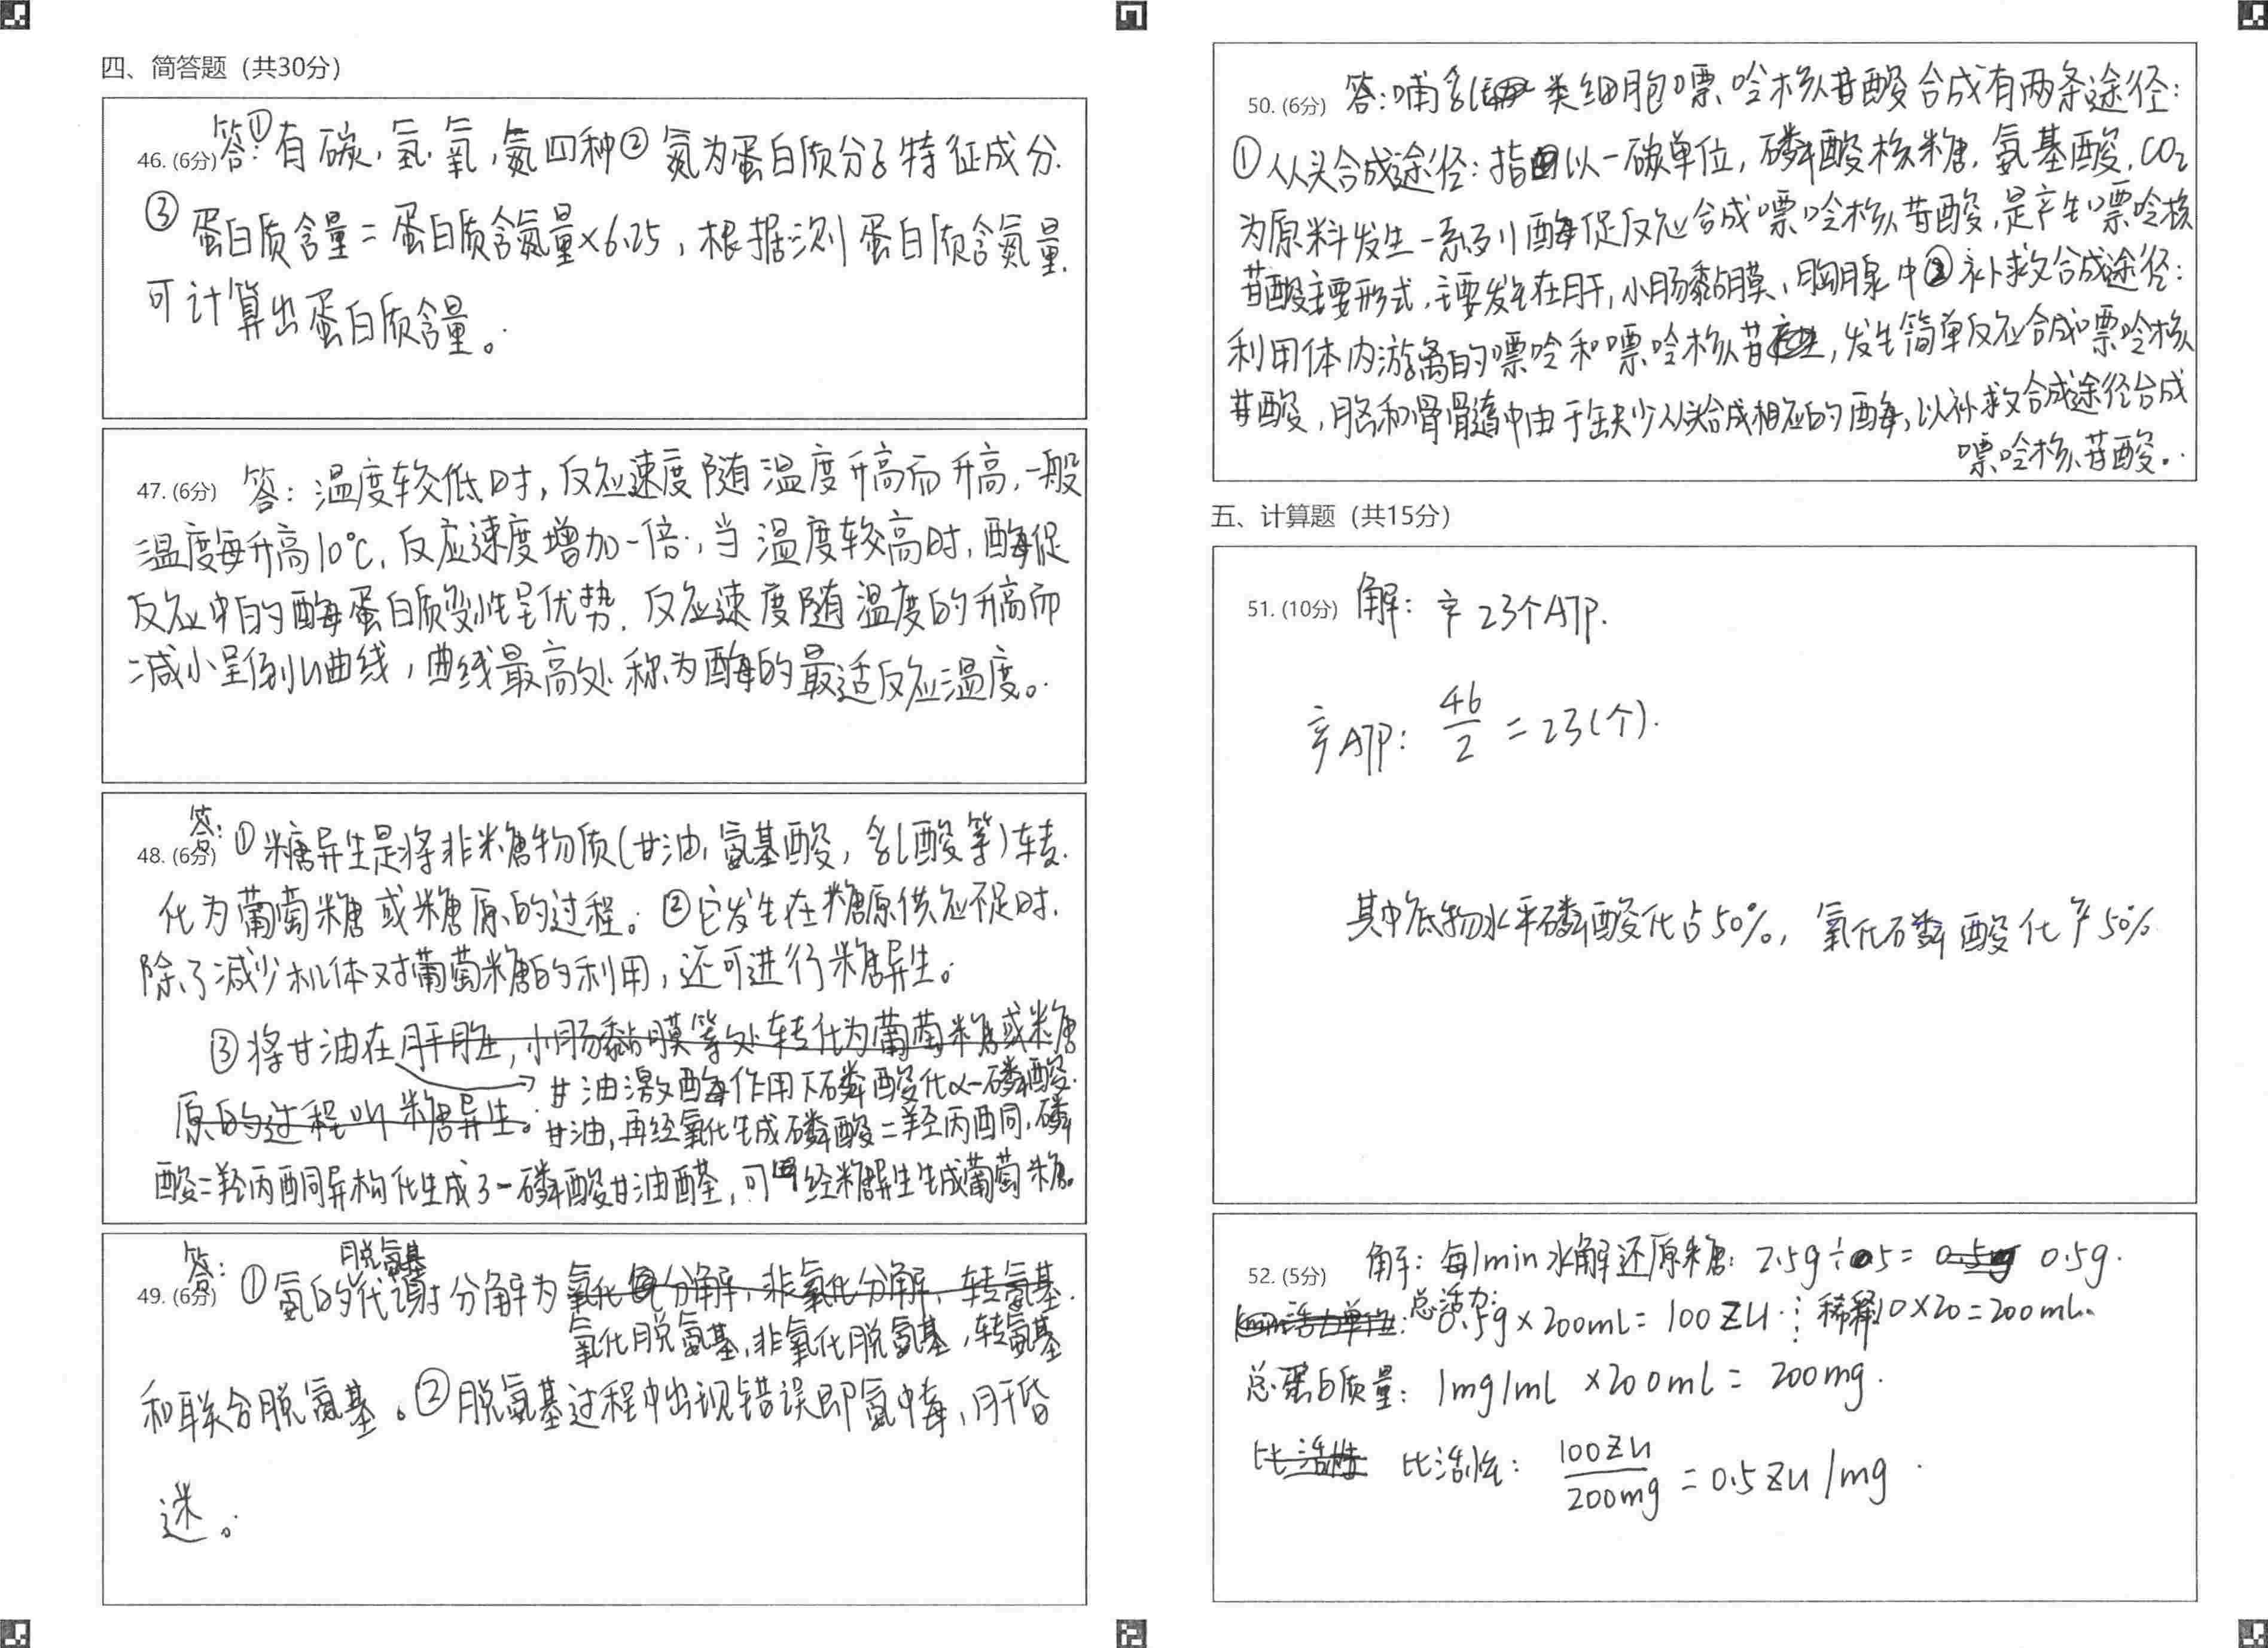 四、简答题（共30分）
46. (6分) 答:①有碳,氢,氧,氮四种②氮为蛋白质分子特征成分.
③蛋白质含量=蛋白质含氮量×6.25,根据测蛋白质含氮量.
可计算出蛋白质含量。
47. (6分) 答:温度较低时,反应速度随温度升高而升高,一般
温度每升高10℃,反应速度增加一倍.,当温度较高时,酶促
反应中的酶蛋白质变性呈优势.反应速度随温度的升高而
减小呈倒U曲线,曲线最高处称为酶的最适反应温度。
48. (6分) 答:①糖异生是将非糖物质(甘油,氨基酸,乳酸等)转
化为葡萄糖或糖原的过程。②它发生在糖原供应不足时.
除了减少机体对葡萄糖的利用,还可进行糖异生。
③将甘油在肝脏,小肠黏膜等处转化为葡萄糖或糖
原的过程叫糖异生。
甘油激酶作用下磷酸化α-磷酸
甘油,再经氧化生成磷酸二羟丙酮,磷
酸二羟丙酮异构化生成3-磷酸甘油醛,可经糖异生生成葡萄糖。
49. (6分) 答:①氨的代谢脱氨基分解为氧化分解,非氧化分解,转氨基
氧化脱氨基,非氧化脱氨基,转氨基
和联合脱氨基。②脱氨基过程中出现错误即氨中毒,肝昏
迷。
50. (6分) 答:哺乳类细胞嘌呤核苷酸合成有两条途径:
①从头合成途径:指以一碳单位,磷酸核糖,氨基酸,CO₂
为原料发生一系列酶促反应合成嘌呤核苷酸,是产生嘌呤核
苷酸主要形式,主要发生在肝,小肠黏膜、胸腺中②补救合成途径:
利用体内游离的嘌呤和嘌呤核苷,发生简单反应合成嘌呤核
苷酸,脑和骨髓中由于缺少从头合成相应的酶,以补救合成途径合成
嘌呤核苷酸。
五、计算题（共15分）
51. (10分) 解:产23个ATP.
产ATP: 46/2 = 23(个).
其中底物水平磷酸化占50%,氧化磷酸化产50%
52. (5分) 解:每1min水解还原糖:2.5g÷5= 0.5g 0.5g.
总活力: 0.5g×200mL=100ZU ∵稀释10×20=200mL.
总蛋白质量: 1mg/mL ×200mL = 200mg.
比活性 比活性: 100ZU/200mg = 0.5ZU/mg.